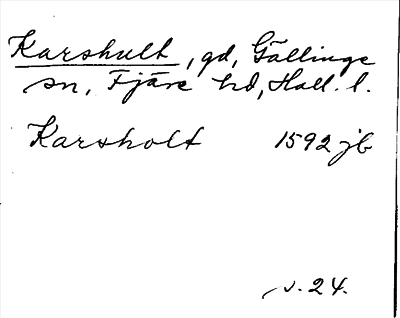 Karshult, gd, Gällinge
sn, Fjäre hd, Hall. l.
Karsholt 1592 jb
s. 24.